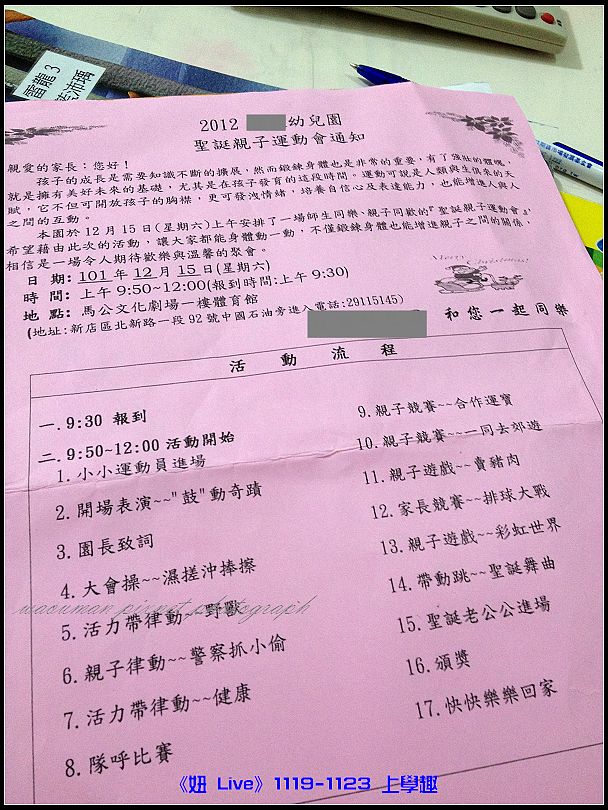 雷龍 3
2012 幼兒園
聖誕親子運動會通知
親愛的家長：您好！
孩子的成長是需要知識不斷的擴展，然而鍛鍊身體也是非常的重要，有了強壯的體魄，
就是擁有美好未來的基礎，尤其是在孩子發育的這段時間。運動可說是人類與生俱來的天
賦，它不但可開放孩子的胸襟，更可發洩情緒，培養自信心及表達能力，也能增進人與人
之間的互動。
本園於 12 月 15 日(星期六)上午安排了一場師生同樂、親子同歡的『聖誕親子運動會』
希望藉由此次的活動，讓大家都能身體動一動，不僅鍛鍊身體也能增進親子之間的關係，
相信是一場令人期待歡樂與溫馨的聚會。
Merry Christmas!
日 期：101 年 12 月 15 日(星期六)
時 間：上午 9:50~12:00(報到時間:上午 9:30)
地 點：馬公文化劇場一樓體育館
(地址:新店區北新路一段 92 號中國石油旁進入電話:29115145)
和您一起同樂
活 動 流 程
一.9:30 報到
二.9:50~12:00 活動開始
1.小小運動員進場
2.開場表演~~"鼓"動奇蹟
3.園長致詞
4.大會操~~濕搓沖捧擦
5.活力帶律動~~野獸
6.親子律動~~警察抓小偷
7.活力帶律動~~健康
8.隊呼比賽
9.親子競賽~~合作運寶
10.親子競賽~~一同去郊遊
11.親子遊戲~~賣豬肉
12.家長競賽~~排球大戰
13.親子遊戲~~彩虹世界
14.帶動跳~~聖誕舞曲
15.聖誕老公公進場
16.頒獎
17.快快樂樂回家
waouman pixnet photograph
《妞 Live》1119-1123 上學趣